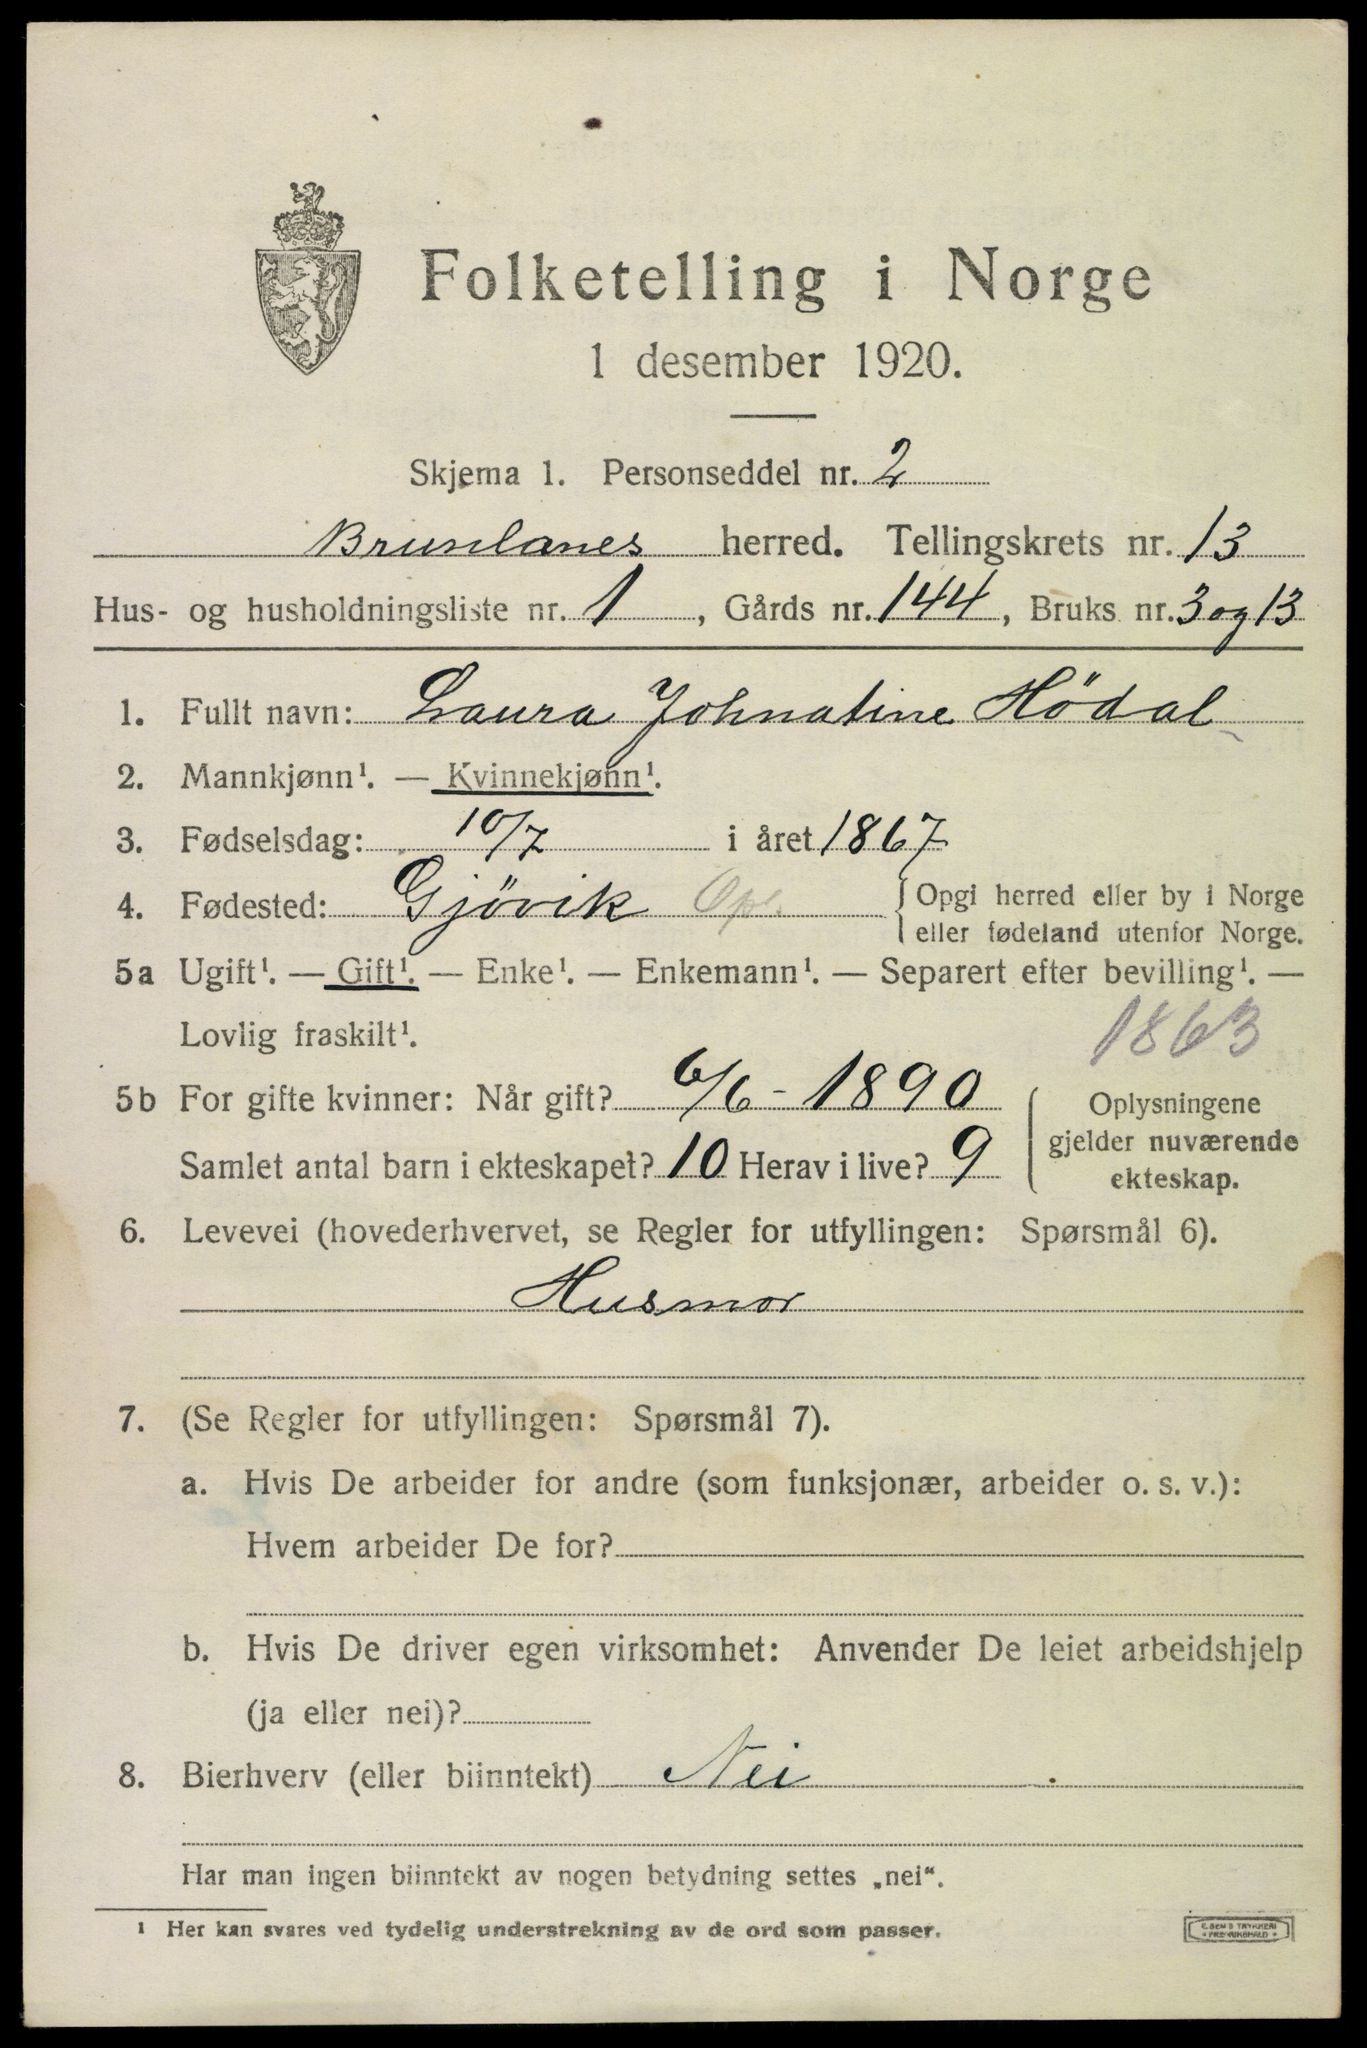 Folketelling i Norge
1 desember 1920.
Skjema 1. Personseddel nr. 2
Brunlanes herred. Tellingskrets nr. 13
Hus- og husholdningsliste nr. 1, Gårds nr. 144, Bruks nr. 3 og 13
1. Fullt navn: Laura Johnatine Hödal
2. Mannkjønn¹. — Kvinnekjønn¹.
3. Fødselsdag: 10/7 i året 1867
4. Fødested: Gjövik Opl. Opgi herred eller by i Norge
eller fødeland utenfor Norge.
5a Ugift¹. — Gift¹. — Enke¹. — Enkemann¹. — Separert efter bevilling¹. —
Lovlig fraskilt¹. 1863
5b For gifte kvinner: Når gift? 6/6 - 1890 Oplysningene
gjelder nuværende
Samlet antal barn i ekteskapet? 10 Herav i live? 9 ekteskap.
6. Levevei (hovederhvervet, se Regler for utfyllingen: Spørsmål 6).
Husmor
7. (Se Regler for utfyllingen: Spørsmål 7).
a. Hvis De arbeider for andre (som funksjonær, arbeider o. s. v.):
Hvem arbeider De for?
b. Hvis De driver egen virksomhet: Anvender De leiet arbeidshjelp
(ja eller nei)?
8. Bierhverv (eller biinntekt) Nei
Har man ingen biinntekt av nogen betydning settes „nei“.
¹ Her kan svares ved tydelig understrekning av de ord som passer.